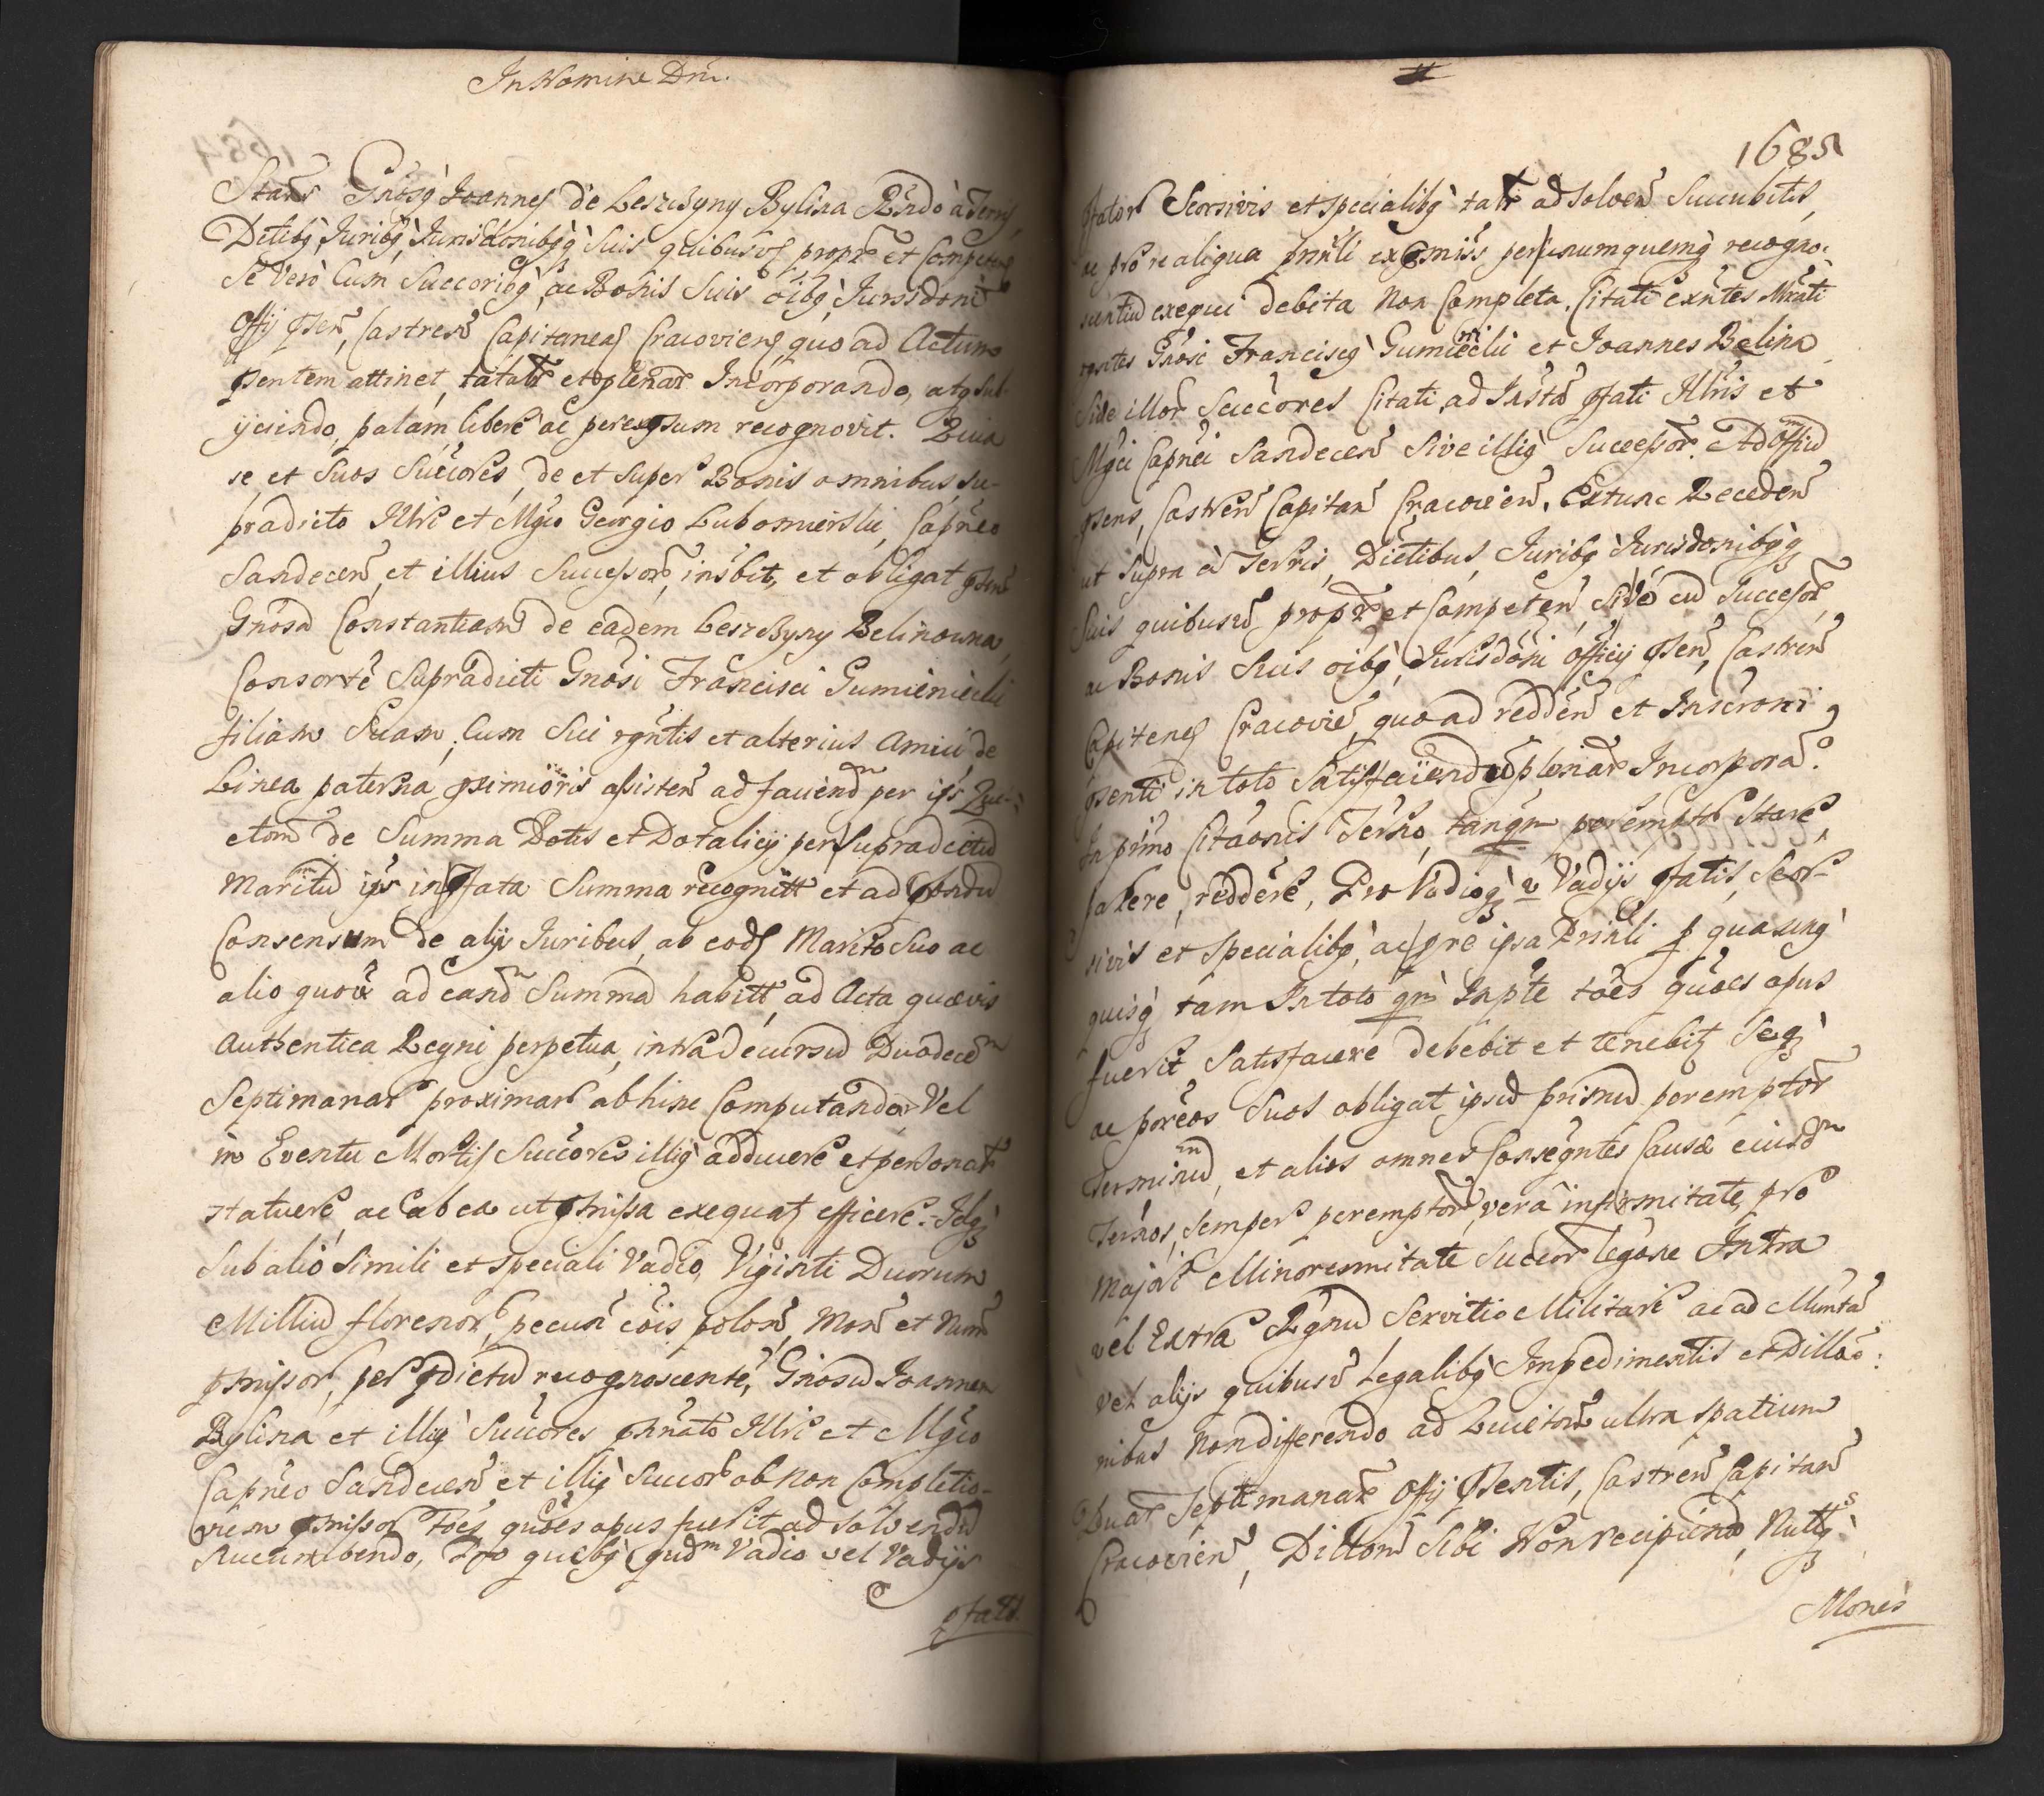 In Nomine Dni.
Stans Gnosq Joannes de Leszczyny Bylina Rcndo à Terris,
Dictibq Juribq Jurisdonibqq Suis quibusvis propr et Competen
Se vero Cum Succoribq, ac Bonis Suis oibq, Jurisdoni
Offij psen, Castren Capitaneas Cracovien, quo ad Actum
psentem attinet, totatr et plenar Incorporando, atq sub
ijciendo, palam libere ac per expsum recognovit. Quia
se et Suos Succores, de et super Bonis omnibus su-
pradicto Illri et Mgco Georgio Lubomierski, Capneo
Sandecen, et illius Successor, insbit, et obligat psent
Gnosa Constantiam de eadem Leszczyny Belinowna,
Consorte Supradicti Gnosi Francisci Gumieniecki
filiam Suam, Cum Sui rgntis et alterius Amici de
Linea paterna pximioris assisten ad faciend per ips Qui-
etom de Summa Dotis et Dotalicij per Supradictu
Maritu ips in pfata Summa recognitt et ad pbendu
Consensum de alijs Juribus, ab eod Marito Suo ac
alio quovis ad eand Summa habitt, ad Acta quævis
Authentica Regni perpetua, intra decursu Duodecem
Septimanar proximar abhinc Computandor Vel
in Eventu Mortis Succores illiq adducere et personatr
statuere ac ab ea ut pmissa exequat efficere. Idq
Sub alio simili et speciali Vadio, Viginti Duorum
Milliu florenor, pecun cois polon, Mon et Num
pmissor, per pdictu recognoscente, Gnosu Joannem
Bylina et illiq Succores pnnato Illri et Mgco
Capneo Sandecen et illiq Succor ob non Completio-
nem pmissor toes quoes opus fuerit ad solvendu
succumbendo, Pro quibq quidm Vadio vel Vadijs
pfatis.
1685
pfator Seorsivis et specialibq tatr ad Solven Succubitis,
ac pro re aliqua pnnli ex pmiss per unumquemq recogno-
scentiu exequi debita non Completa. Citati exntes Mrati
rgntes Gnosi Franciscq Gumieniecki et Joannes Belina
Sive illor Succores Citati, ad Insta pfati Illris et
Mgci Capnei Sandecen Sive illiq Successor. Ad Offiu
psens, Castren Capitan Cracovien. Extunc Receden
ut supra à Terris, Dictibus, Juribq Jurisdonibqq
Suis quibusvi propr et Competen, Sive cu Succesor,
ac Bonis Suis oibq, Jurisdoni Officij psen, Castren
Capitenes Cracovie, quo ad redden et Inscroni
psenti in toto Satisfaciend plenar Incorpora.
In primo Citaonis Terno, tanqm perempto Stare,
parere, reddere, Pro Vadioq & Vadijs pfatis, Seor-
sivis et specialibq, ac pre ipsa Prinli p quacunq
quisq tam In toto qm In pte toes quoes opus
fuerit Satisfacere debebit et tenebit Seq
ac poreos Suos obligat ipsu primu peremptor
Terminu, et alios omnes Conseqntes Causæ eiusdm
Ternos, semper peremptor, vera infirmitate, pro
majori Minorennitate Succor legone Intra
vel Extra Rgnu Servitio Militari ac ad Munta
vel alijs quibusvi Legalibq Impedimentis et Dillao:
nibus non differendo ad Luciton ultra spatium
Duar Septimanar Offij psentis, Castren Capitan
Cracovien, Dilton Sibi Non recipiend, Nullsq
Mones